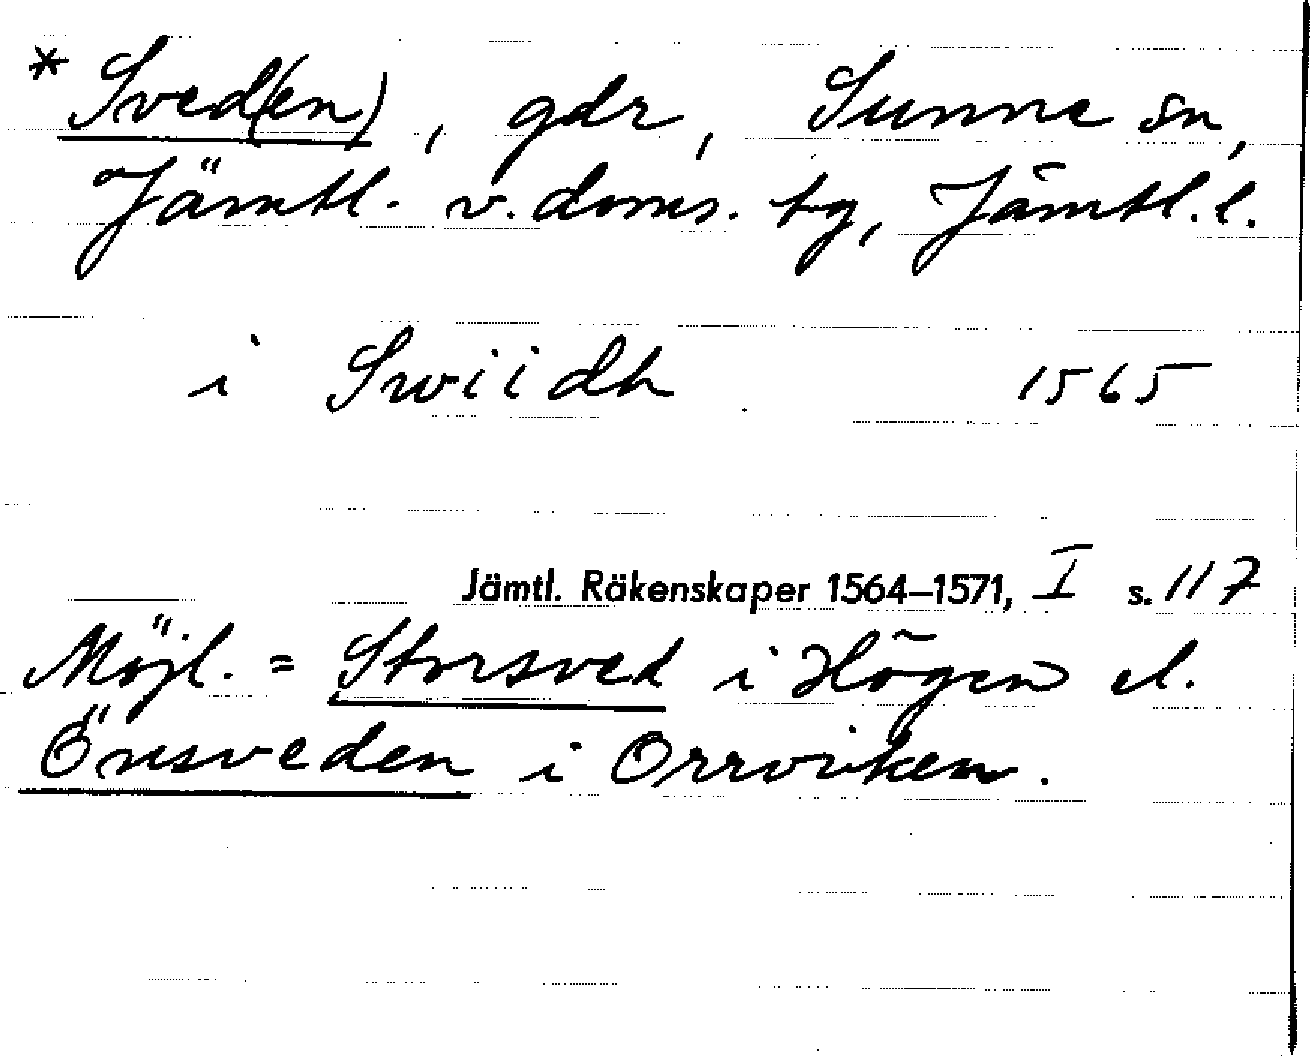 * Sved(en), gdr, Sunne sn,
Jämtl. v. doms. tg, Jämtl. l.
i Swiidh 1565
Jämtl. Räkenskaper 1564–1571, I s. 117
Möjl. = Storsved i Högen el.
Önsveden i Orrviken.